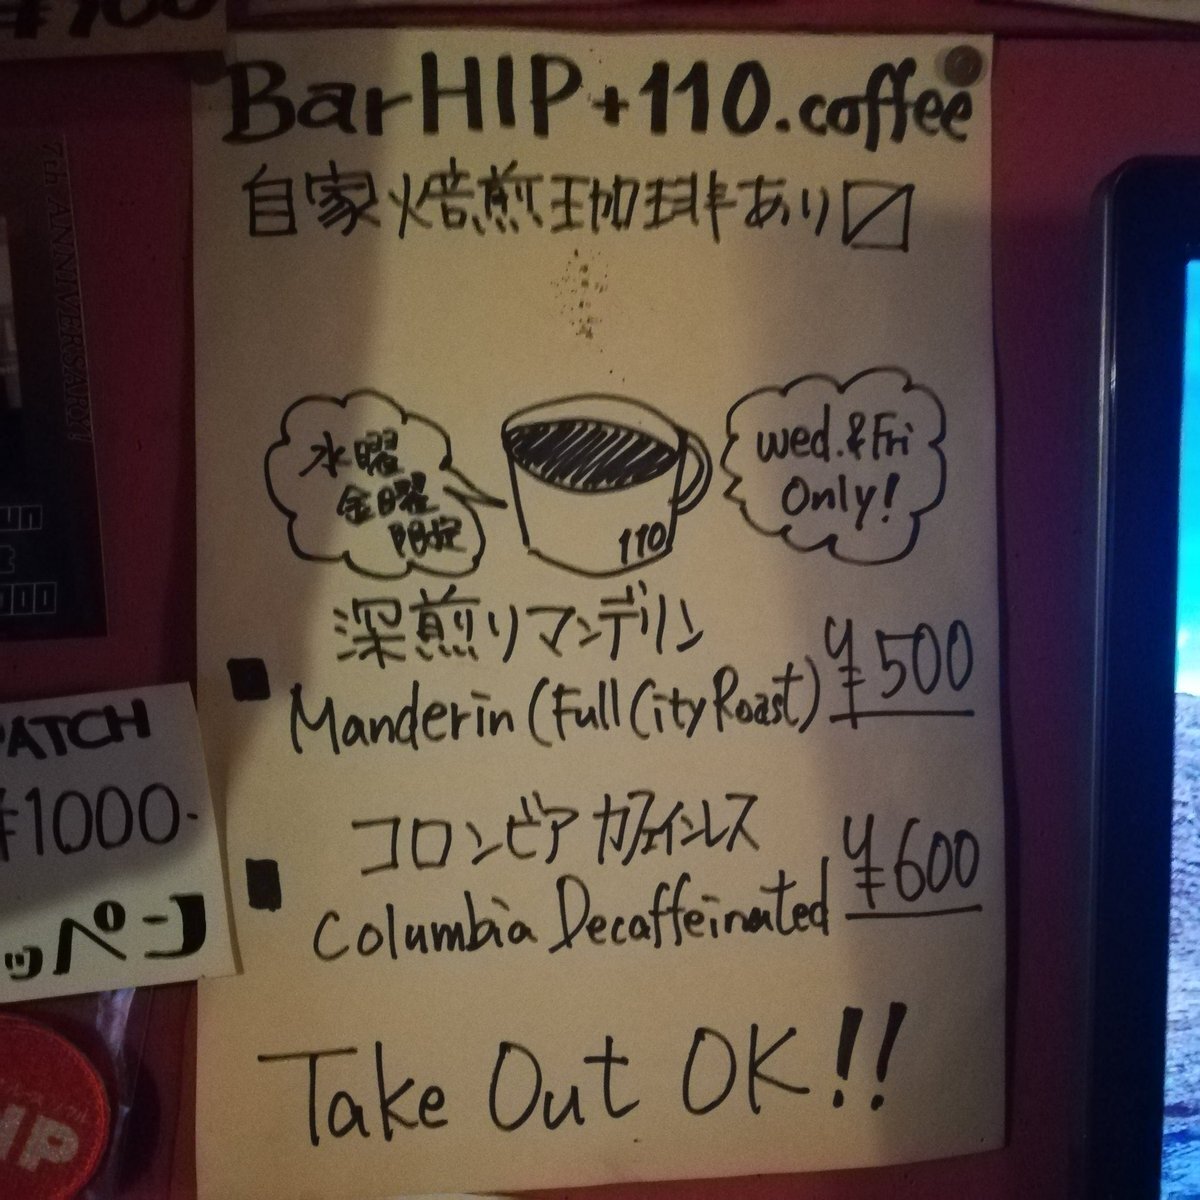 Bar HIP + 110. coffee
自家焙煎珈琲あり〼
水曜
金曜
限定
Wed. & Fri
Only!
110
深煎りマンデリン
Manderin (Full City Roast) ¥500
コロンビア カフェインレス
Columbia Decaffeinated ¥600
Take Out OK!!
7th ANNIVERSARY!
PATCH
¥1000-
ッペン